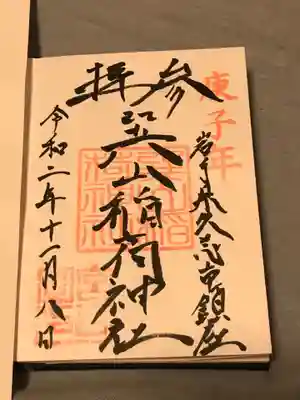 庚子年
岩手県久慈市鎮座
参拝
巽山稲荷神社
令和二年十一月八日